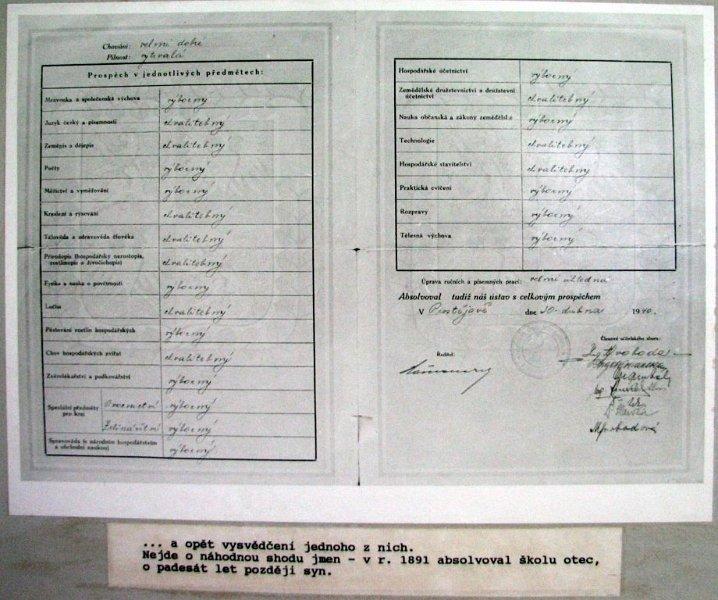 Chování: velmi dobré
Pilnost: vytrvalá
Prospěch v jednotlivých předmětech:
Mravouka a společenská výchova výborný
Jazyk český a písemnosti chvalitebný
Zeměpis a dějepis chvalitebný
Počty výborný
Měřictví a vyměřování výborný
Kreslení a rýsování chvalitebný
Tělověda a zdravověda člověka chvalitebný
Přírodopis (hospodářský nerostopis,
rostlinopis a živočichopis) chvalitebný
Fysika a nauka o povětrnosti výborný
Lučba chvalitebný
Pěstování rostlin hospodářských výborný
Chov hospodářských zvířat chvalitebný
Zvěrolékařství a podkovářství výborný
Speciální předměty
pro kraj Ovocnictví výborný
Zelinářství výborný
Spravověda (s národním hospodářstvím
a obchodní naukou) výborný
Hospodářské účetnictví výborný
Zemědělské družstevnictví a družstevní
účetnictví chvalitebný
Nauka občanská a zákony zemědělské výborný
Technologie chvalitebný
Hospodářské stavitelství chvalitebný
Praktická cvičení výborný
Rozpravy výborný
Tělesná výchova výborný
Úprava ručních a písemných prací: velmi úhledná
Absolvoval tudíž náš ústav s celkovým prospěchem
V Prostějově dne 30. dubna 1940.
Ředitel:
Členové učitelského sboru:
Svoboda
... a opět vysvědčení jednoho z nich.
Nejde o náhodnou shodu jmen - v r. 1891 absolvoval školu otec,
o padesát let později syn.